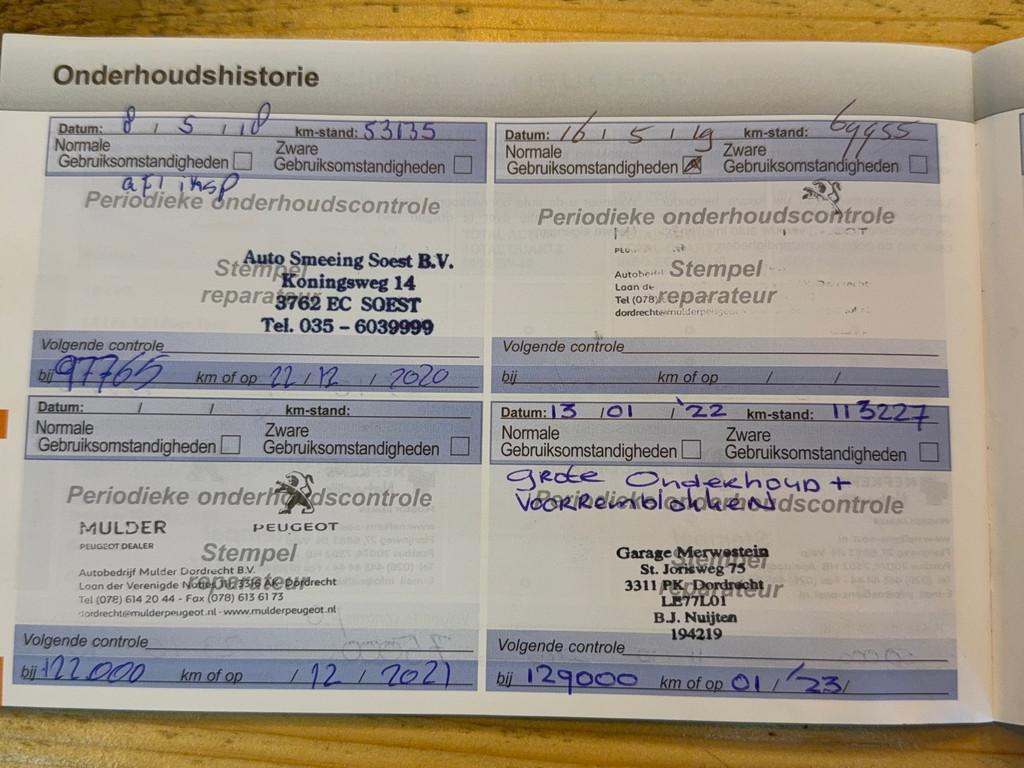 Onderhoudshistorie
Datum: 8 / 5 / 18 km-stand: 53135
Normale Gebruiksomstandigheden
Zware Gebruiksomstandigheden
Periodieke onderhoudscontrole
Stempel
reparateur
Auto Smeeing Soest B.V.
Koningsweg 14
3762 EC SOEST
Tel. 035 - 6039999
Volgende controle
bij 97765 km of op 22 / 12 / 2020
Datum: 16 / 5 / 19 km-stand: 69955
Normale Gebruiksomstandigheden
Zware Gebruiksomstandigheden
Periodieke onderhoudscontrole
Stempel
reparateur
Laan de
Tel (078)
Volgende controle
bij km of op / /
Datum: / / km-stand:
Normale Gebruiksomstandigheden
Zware Gebruiksomstandigheden
Periodieke onderhoudscontrole
MULDER
PEUGEOT DEALER
PEUGEOT
Stempel
reparateur
Autobedrijf Mulder Dordrecht B.V.
Laan der Verenigde Dordrecht
Tel (078) 614 20 44 - Fax (078) 613 61 73
dordrecht@mulderpeugeot.nl - www.mulderpeugeot.nl
Volgende controle
bij 122.000 km of op / 12 / 2021
Datum: 13 / 01 / '22 km-stand: 113227
Normale Gebruiksomstandigheden
Zware Gebruiksomstandigheden
grote Onderhoud +
voorremblokken
Periodieke onderhoudscontrole
Stempel
reparateur
Garage Merwestein
St. Jorisweg 75
3311 PK Dordrecht
LE77L01
B.J. Nuijten
194219
Volgende controle
bij 129000 km of op 01 / '23 /